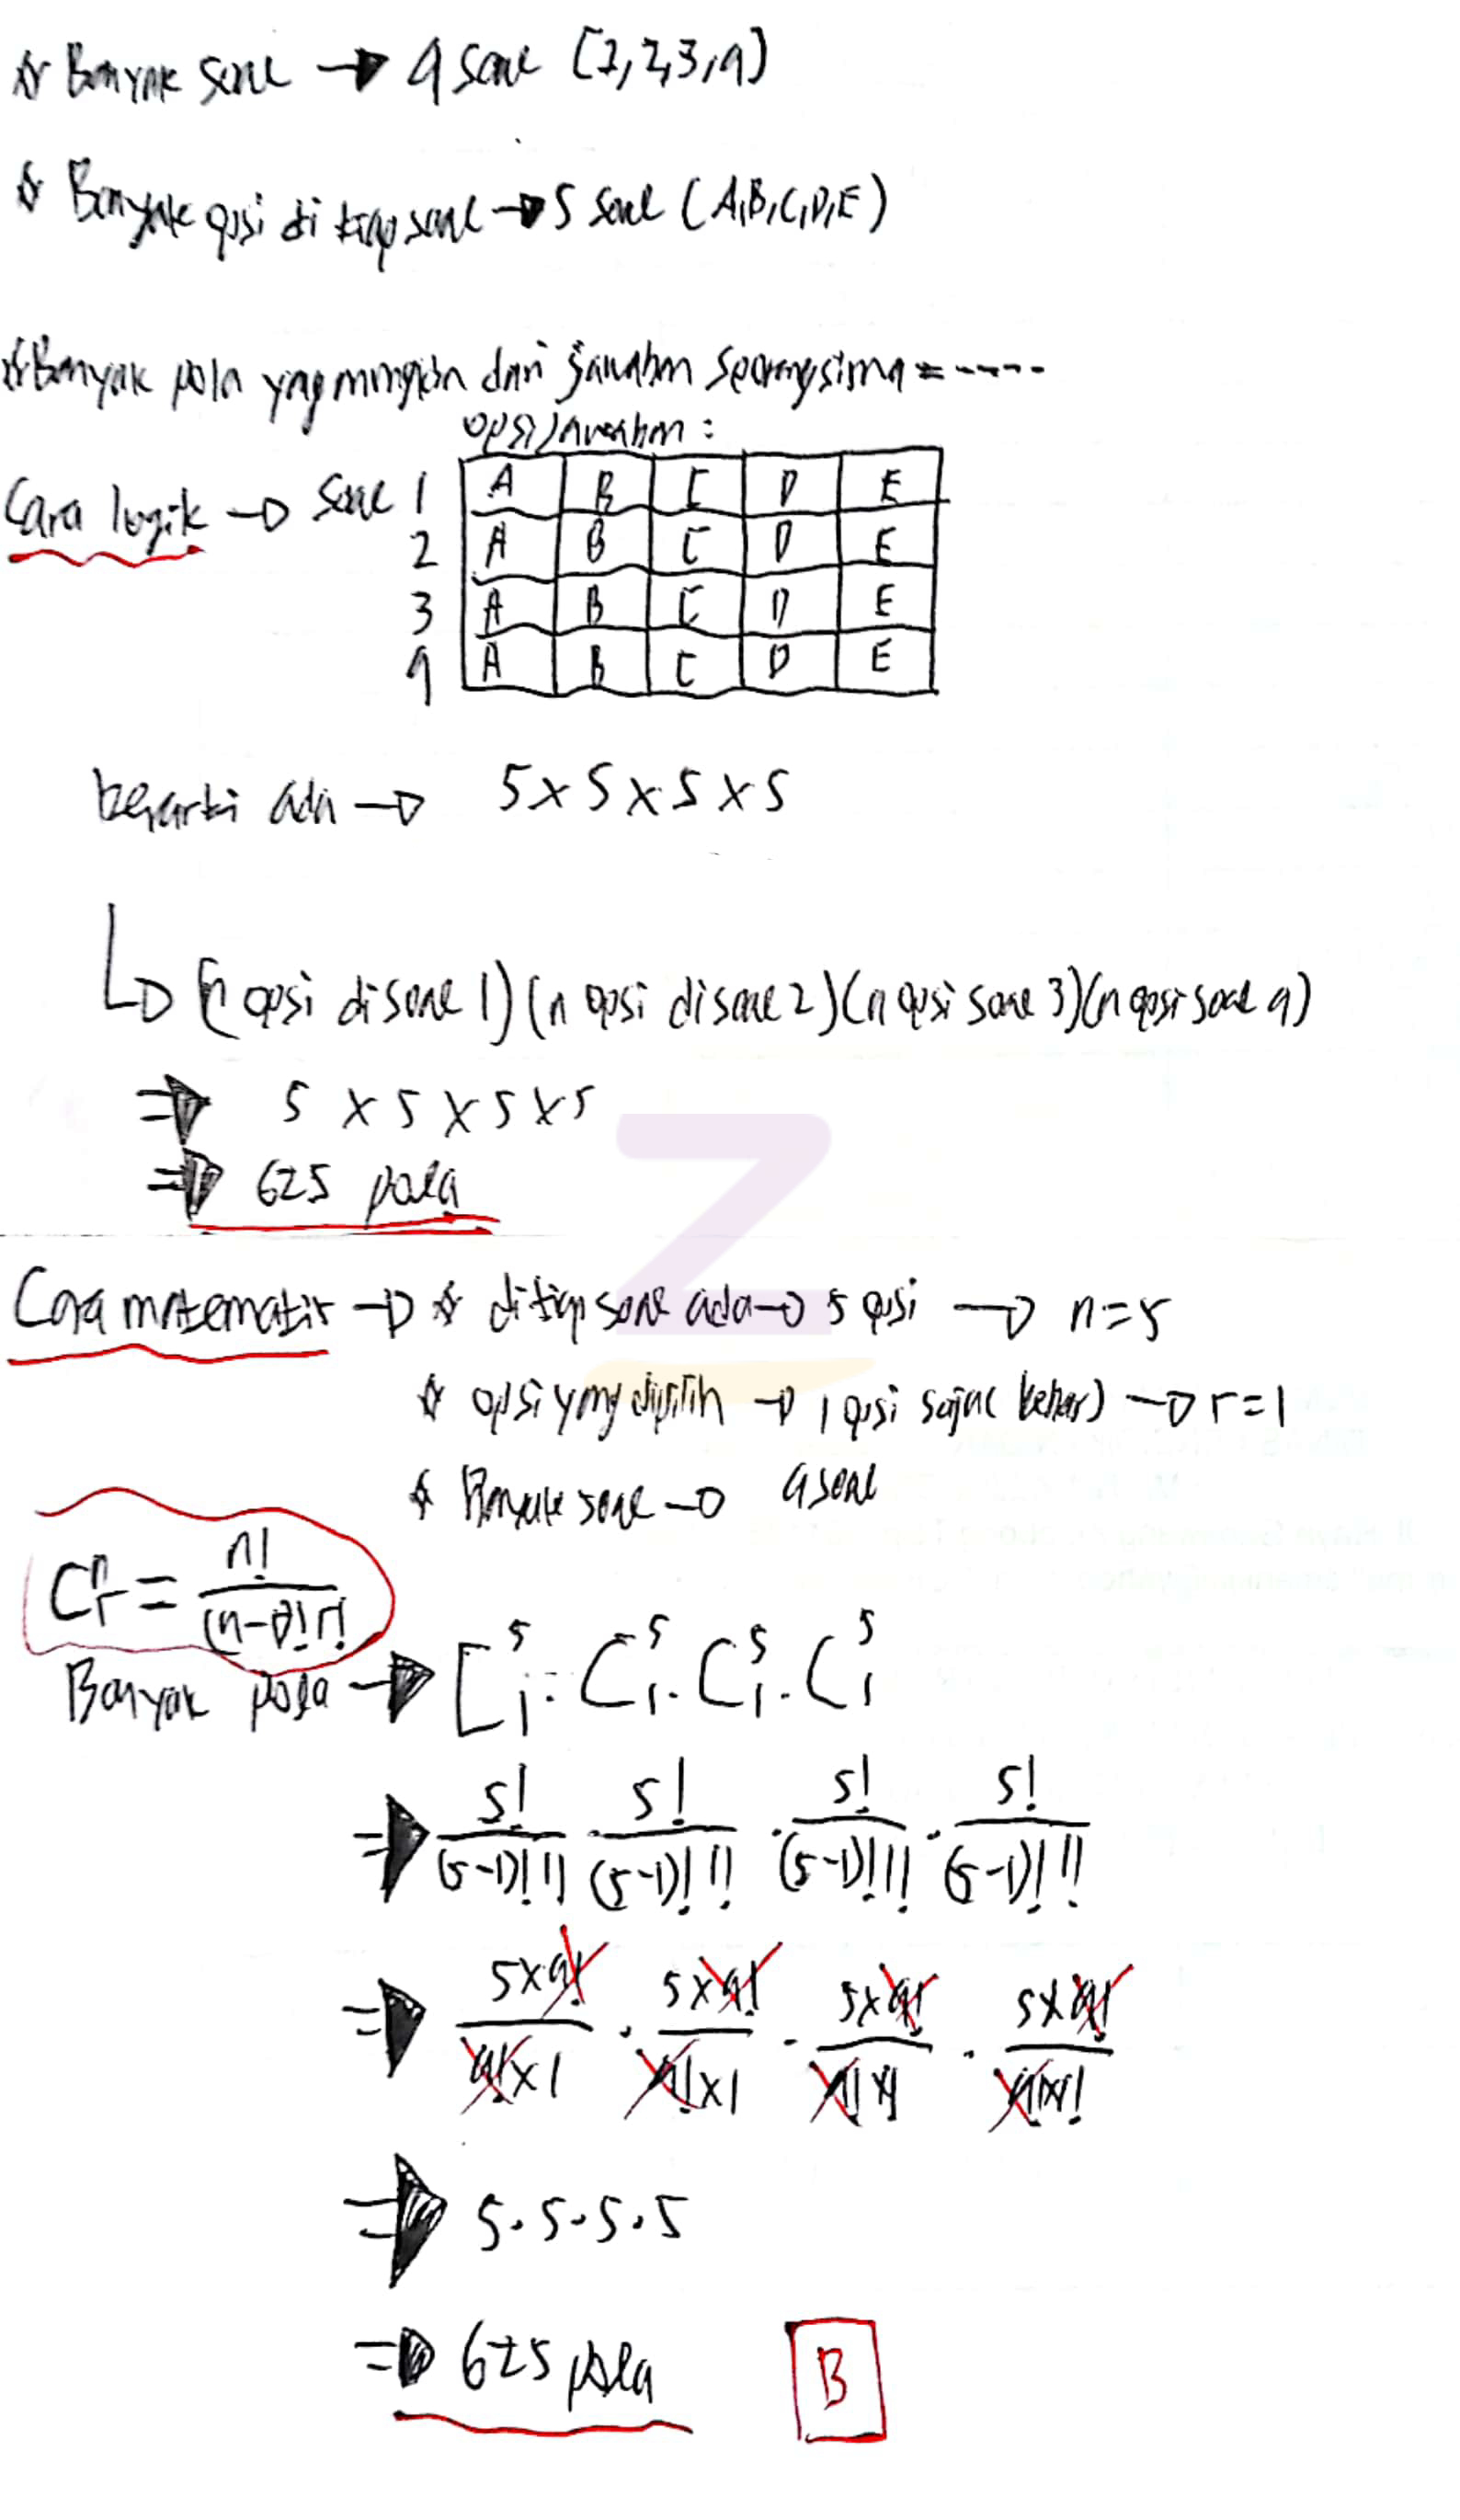 ☆ Banyak soal → 4 soal [1, 2, 3, 4)
☆ Banyak opsi di tiap soal → 5 soal (A,B,C,D,E)
☆ Banyak pola yng mungkin dari jawabn seorang siswa = -----
opsi jawabn :
Cara logik → soal 1 A B C D E
2 A B C D E
3 A B C D E
4 A B C D E
berarti ada → 5 x 5 x 5 x 5
↳ (n opsi di soal 1) (n opsi di soal 2) (n opsi soal 3) (n opsi soal 4)
⇒ 5 x 5 x 5 x 5
⇒ 625 pola
Cara matematis → ☆ ditiap soal ada → 5 opsi → n=5
☆ opsi yng dipilih → 1 opsi saja( benar) → r=1
☆ Banyak soal → 4 soal
C^n_r = n!/(n-r)!r!
Banyak pola → C^5_1 . C^5_1 . C^5_1 . C^5_1
⇒ 5!/(5-1)!1! . 5!/(5-1)!1! . 5!/(5-1)!1! . 5!/(5-1)!1!
⇒ 5x4!/4!x1 . 5x4!/4!x1 . 5x4!/4!x1 . 5x4!/4!x1!
⇒ 5 . 5 . 5 . 5
⇒ 625 pola B